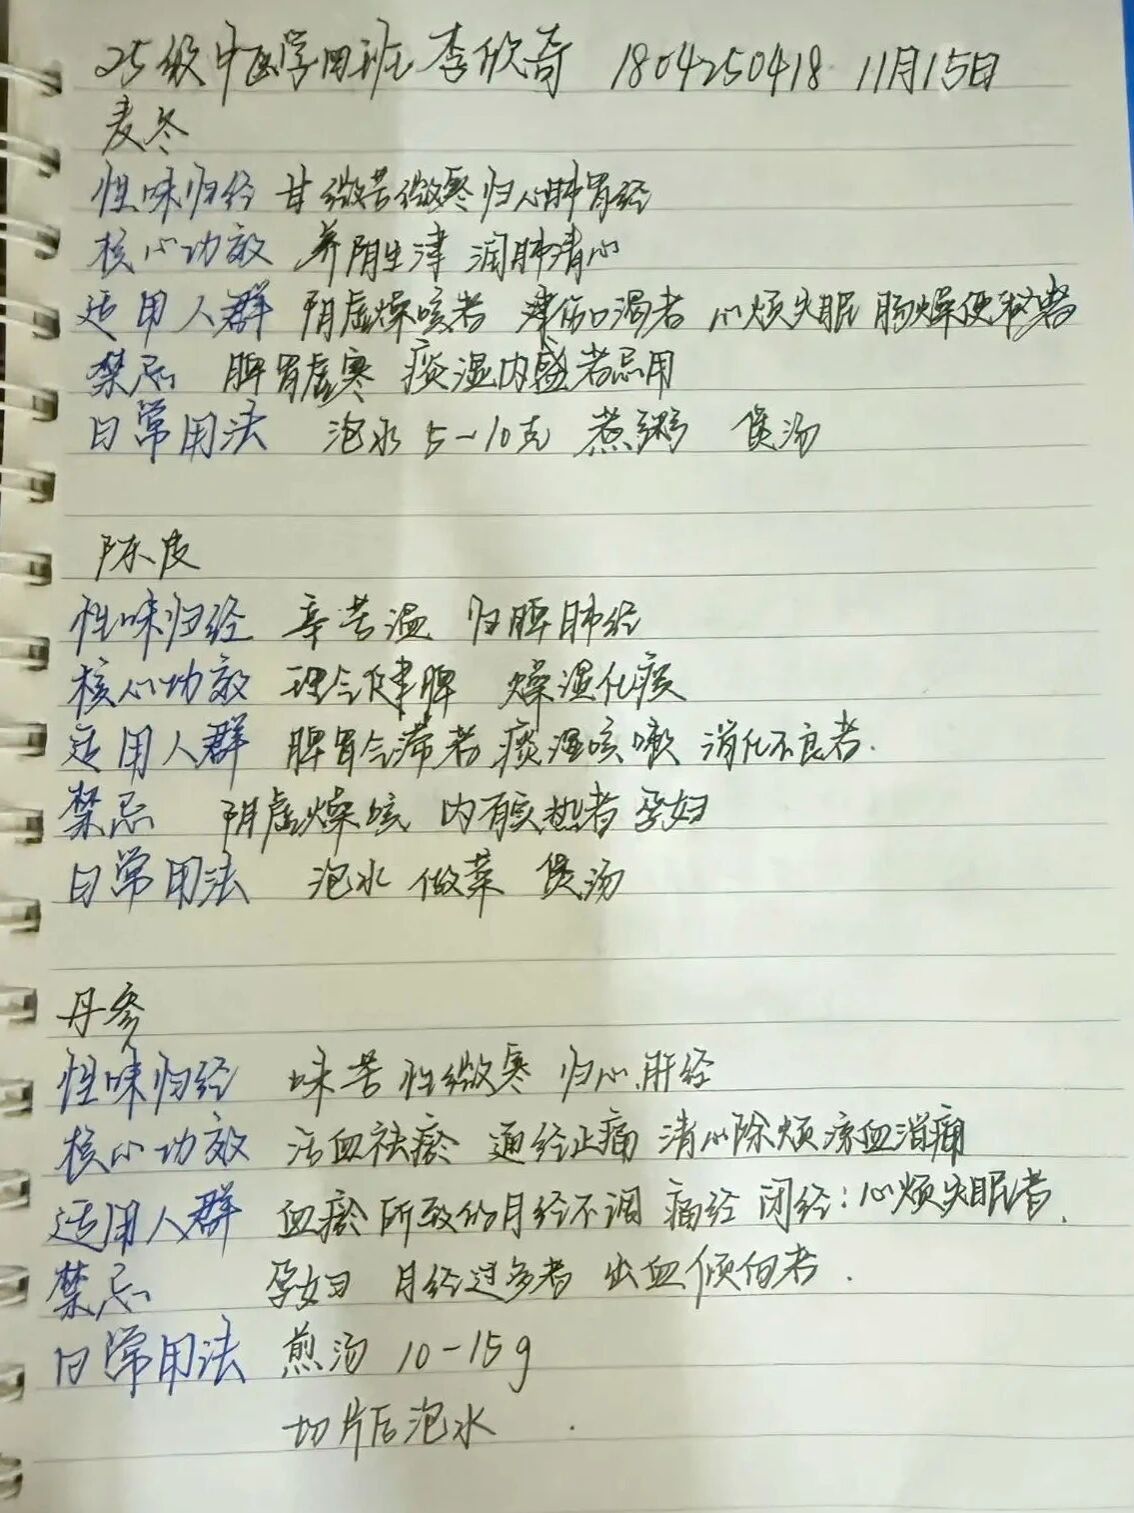 25级中医学四班 李欣奇 1804250418 11月15日
麦冬
性味归经 甘微苦微寒归心肺胃经
核心功效 养阴生津 润肺清心
适用人群 阴虚燥咳者 津伤口渴者 心烦失眠 肠燥便秘者
禁忌 脾胃虚寒 痰湿内盛者忌用
日常用法 泡水5-10克 煮粥 煲汤
陈皮
性味归经 辛苦温 归脾肺经
核心功效 理气健脾 燥湿化痰
适用人群 脾胃气滞者 痰湿咳嗽 消化不良者.
禁忌 阴虚燥咳 内有实热者 孕妇
日常用法 泡水 做菜 煲汤
丹参
性味归经 味苦 性微寒 归心.肝经
核心功效 活血祛瘀 通经止痛 清心除烦 凉血消痈
适用人群 血瘀所致的月经不调 痛经 闭经: 心烦失眠者.
禁忌 孕妇 月经过多者 出血倾向者.
日常用法 煎汤 10-15g
切片后泡水